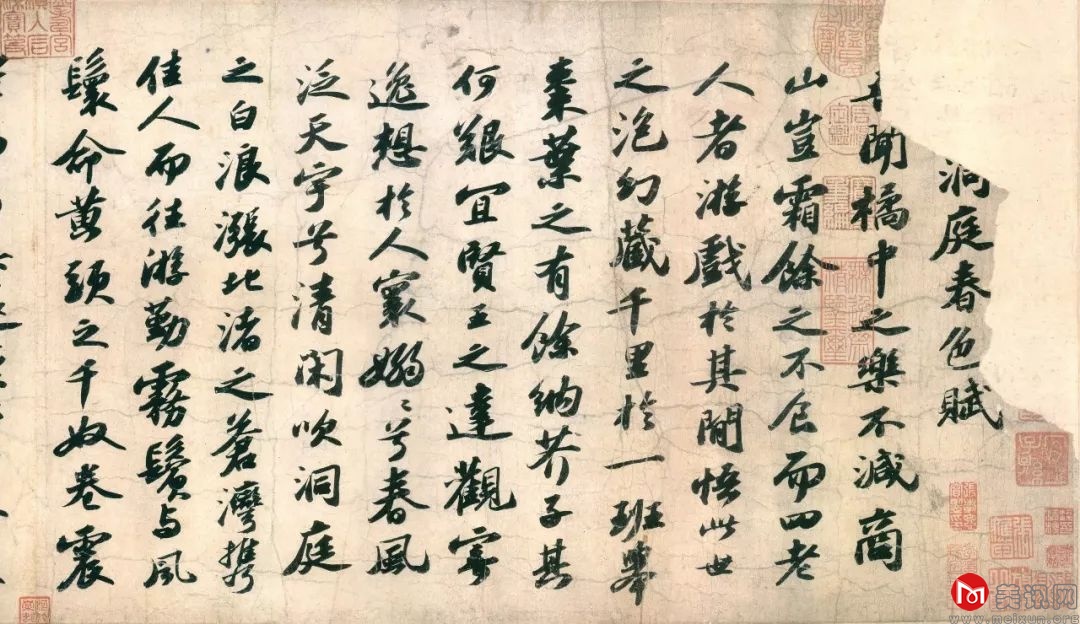 洞庭春色賦
聞橘中之樂不減商
山豈霜餘之不食而四老
人者游戲於其間悟此世
之泡幻藏千里於一班舉
棗葉之有餘納芥子其
何艱宜賢王之達觀寄
逸想於人寰嫋〻兮春風
泛天宇兮清閑吹洞庭
之白浪漲北渚之蒼灣攜
佳人而往游勤霧鬢与風
鬟命黃頭之千奴卷震
美讯网
www.meixun.org